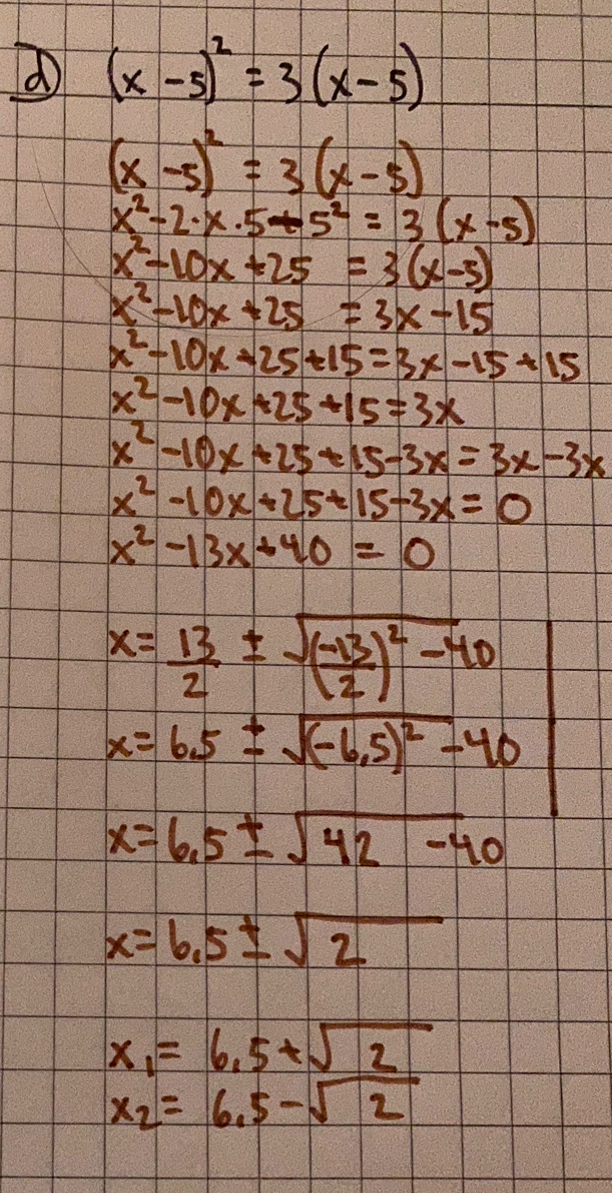 d) (x - 5)² = 3(x - 5)
(x - 5)² = 3(x - 5)
x² - 2·x·5 + 5² = 3(x - 5)
x² - 10x + 25 = 3(x - 5)
x² - 10x + 25 = 3x - 15
x² - 10x + 25 + 15 = 3x - 15 + 15
x² - 10x + 25 + 15 = 3x
x² - 10x + 25 + 15 - 3x = 3x - 3x
x² - 10x + 25 + 15 - 3x = 0
x² - 13x + 40 = 0
x = 13/2 ± √((-13/2)² - 40)
x = 6,5 ± √((-6,5)² - 40)
x = 6,5 ± √(42 - 40)
x = 6,5 ± √2
x₁ = 6,5 + √2
x₂ = 6,5 - √2